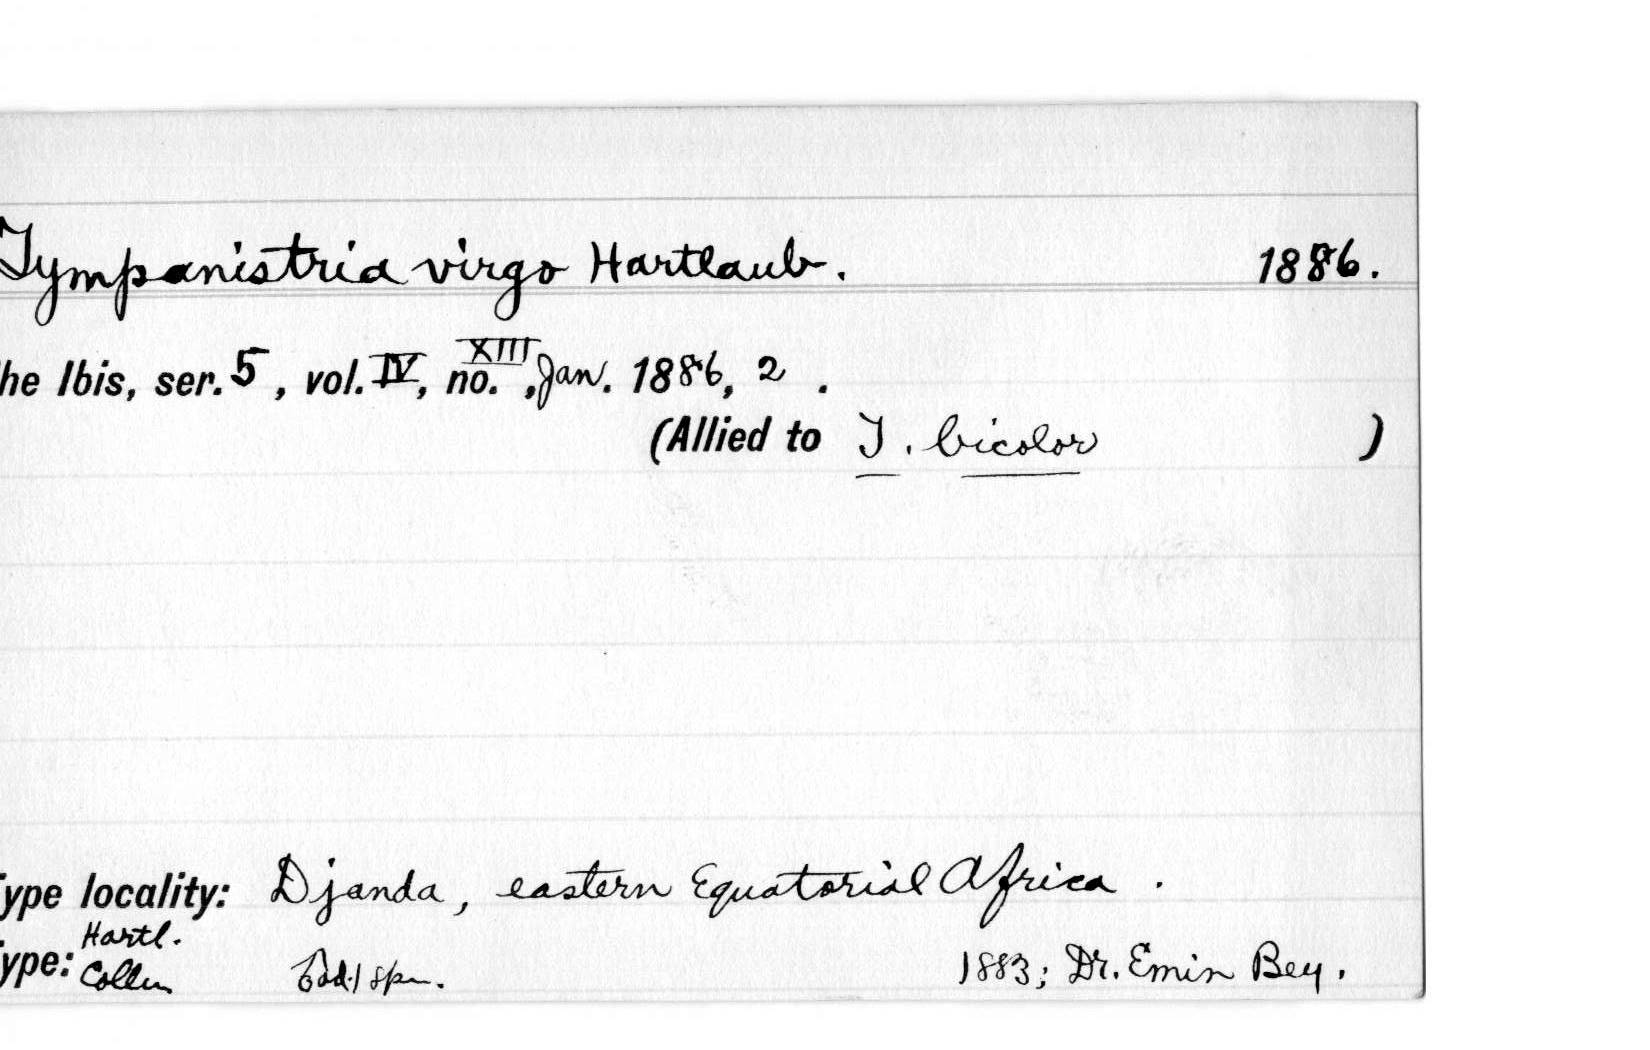 Tympanistria virgo Hartlaub. 1886.
he Ibis, ser. 5, vol. IV, no. XIII, Jan. 1886, 2.
(Allied to T. bicolor )
ype locality: Djanda, eastern Equatorial Africa.
Hartl.
ype: Colln 1 spm. 1883; Dr. Emin Bey.